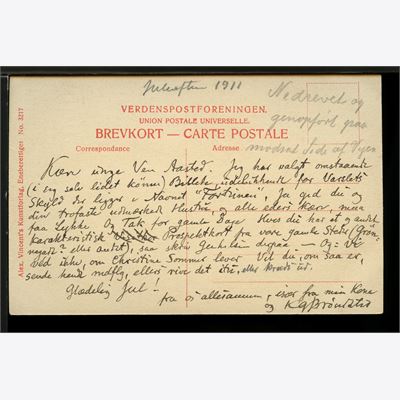 Juleaften 1911
Nedrevet og
genopført paa
modsat Side af Vejen
VERDENSPOSTFORENINGEN.
UNION POSTALE UNIVERSELLE.
BREVKORT — CARTE POSTALE
Correspondance
Adresse
Alex. Vincent's Kunstforlag, Eneberettiget No. 3217
Kære unge Ven Aarsted. Jeg har valgt omstaaende
(i sig selv lidet kønne) Billede, udelukkende for Varslets
Skyld der ligger i Navnet "Fortunen", Ja gid du og
din trofaste udmærkede Hustru og alle eders kære, maa
faa Lykke og Tak for gamle Dage. Hvis du har et og andet
karakteristisk Prospektkort fra vore gamle Steder (Grøn-
negade? eller andet), saa skøn Genhilsen dyrine. — Og: Ve
ved ikke, om Christine Sommer lever. Vil du, om saa er,
sende hende indlagt, eller rive det itu, eller bræd ud.
Glædelig Jul!
fra os allesammen, især fra min Kone
og K G Brøndsted